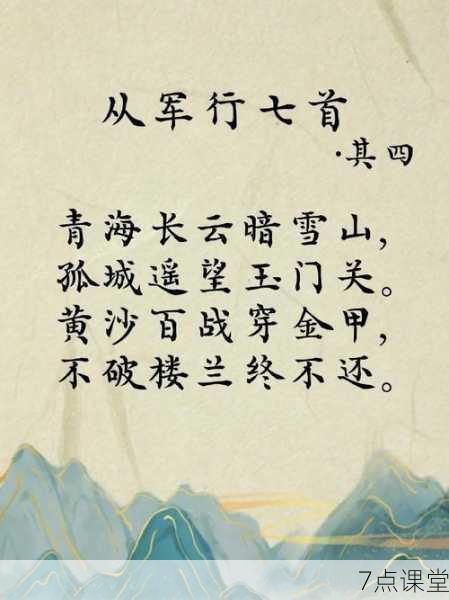 从军行七首
·其四
青海长云暗雪山，
孤城遥望玉门关。
黄沙百战穿金甲，
不破楼兰终不还。
7点课堂